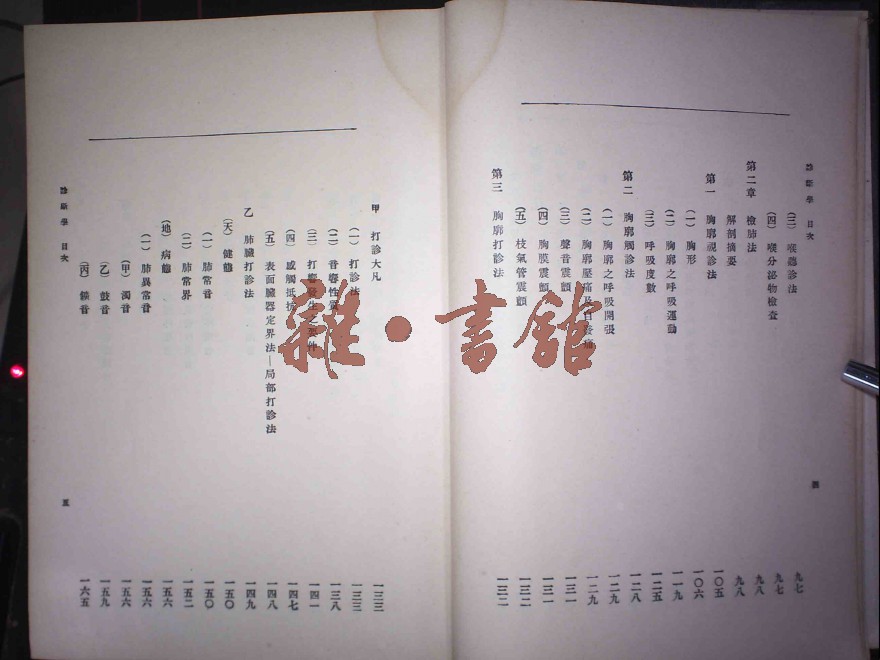 診斷學 目次
(三) 喉聽診法 九七
(四) 喉分泌物檢查 九七
第二章 檢肺法 九八
解剖摘要 九八
第一 胸廓視診法 一〇五
(一) 胸形 一〇六
(二) 胸廓之呼吸運動 一一九
(三) 呼吸度數 一二五
第二 胸廓觸診法 一二八
(一) 胸廓之呼吸開張 一二九
(二) 胸廓壓痛及自發痛 一二九
(三) 聲音震顫 一三一
(四) 胸膜震顫 一三一
(五) 枝氣管震顫 一三二
第三 胸廓打診法 一三二
四
甲 打診大凡 一三三
(一) 打診法 一三三
(二) 音響性質 一三八
(三) 打響發生之條件 一四一
(四) 感觸抵抗 一四七
(五) 表面臟器定界法—局部打診法 一四八
乙 肺臟打診法 一四九
(天) 健態 一五〇
(一) 肺常音 一五〇
(二) 肺常界 一五二
(地) 病態 一五六
(一) 肺異常音 一五六
(甲) 濁音 一五六
(乙) 鼓音 一五九
(丙) 音 一六五
診斷學 目次
五
雜·書館